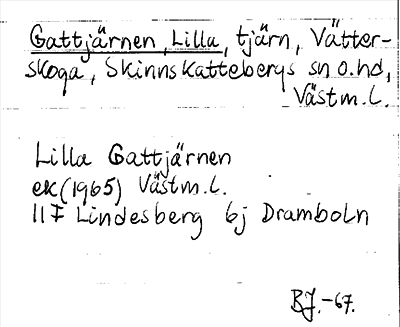 Gattjärnen, Lilla, tjärn, Vätter-
skoga, Skinnskattebergs sn o. hd,
Västm. l.
Lilla Gattjärnen
ek (1965) Västm. l.
11F Lindesberg 6j Dramboln
BJ. -67.